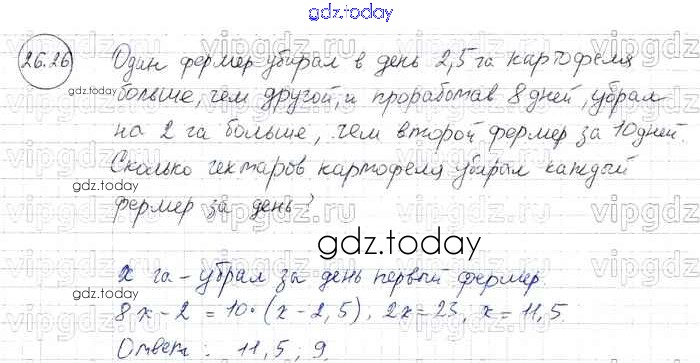 gdz.today
26.26
Один фермер убирал в день 2,5 га картофеля
больше, чем другой, и проработав 8 дней, убрал
на 2 га больше, чем второй фермер за 10 дней.
Сколько гектаров картофеля убирал каждый
фермер за день?
gdz.today
gdz.today
gdz.today
x га - убрал за день первый фермер.
8x - 2 = 10·(x - 2,5), 2x = 23, x = 11,5.
Ответ: 11,5; 9.
gdz.today